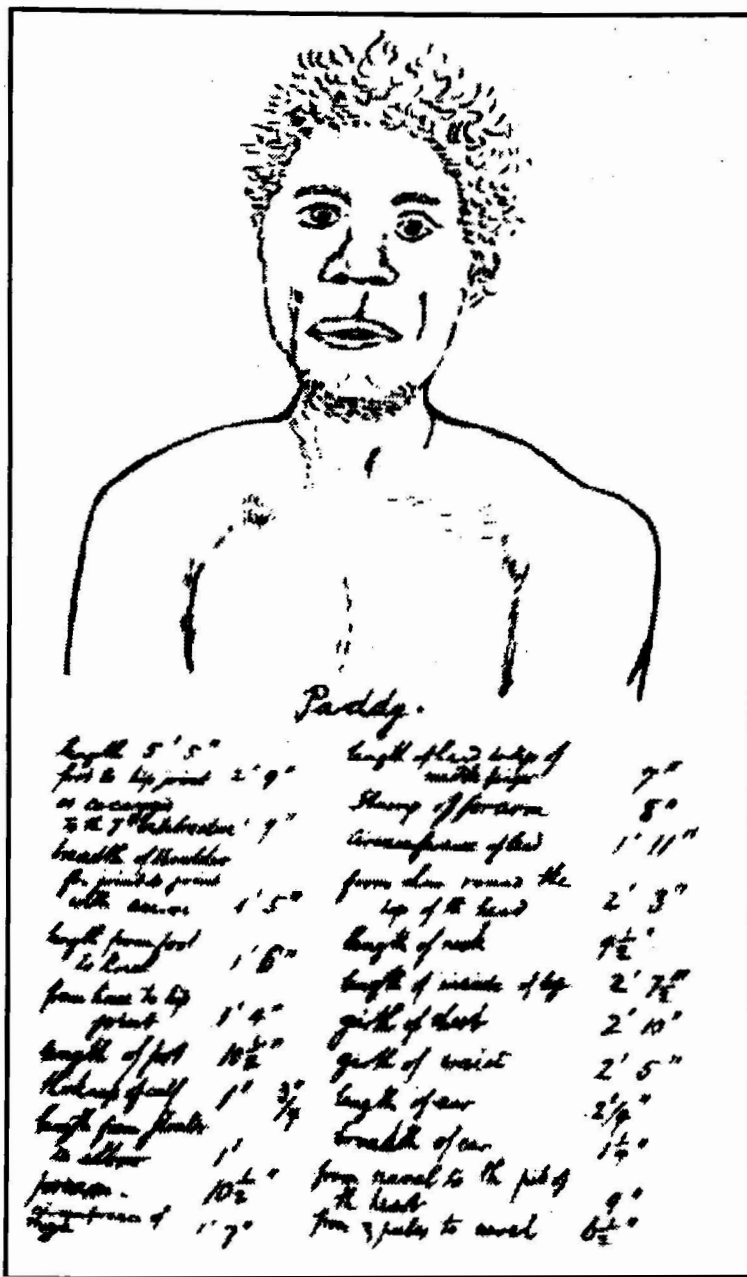 Paddy.
length 5' 5"
foot to hip joint 2' 9"
to the 7th
breadth of shoulder
1' 5"
length from foot
to knee 1' 6"
from knee to hip
joint 1' 4"
length of foot 10½"
of calf 1" ¾"
length from
to elbow 1'
forearm. 10½"
circumference of
thigh 1' 7"
length of tip of
middle finger 7"
of forearm 8"
circumference of head 1' 11"
from round the
top of the head 2' 3"
length of neck
length of inside of leg 2' 7½"
girth of chest 2' 10"
girth of waist 2' 5"
length of ear 2¼"
breadth of ear 1¼"
from navel to the pit of
the 9"
from pubes to navel 6½"